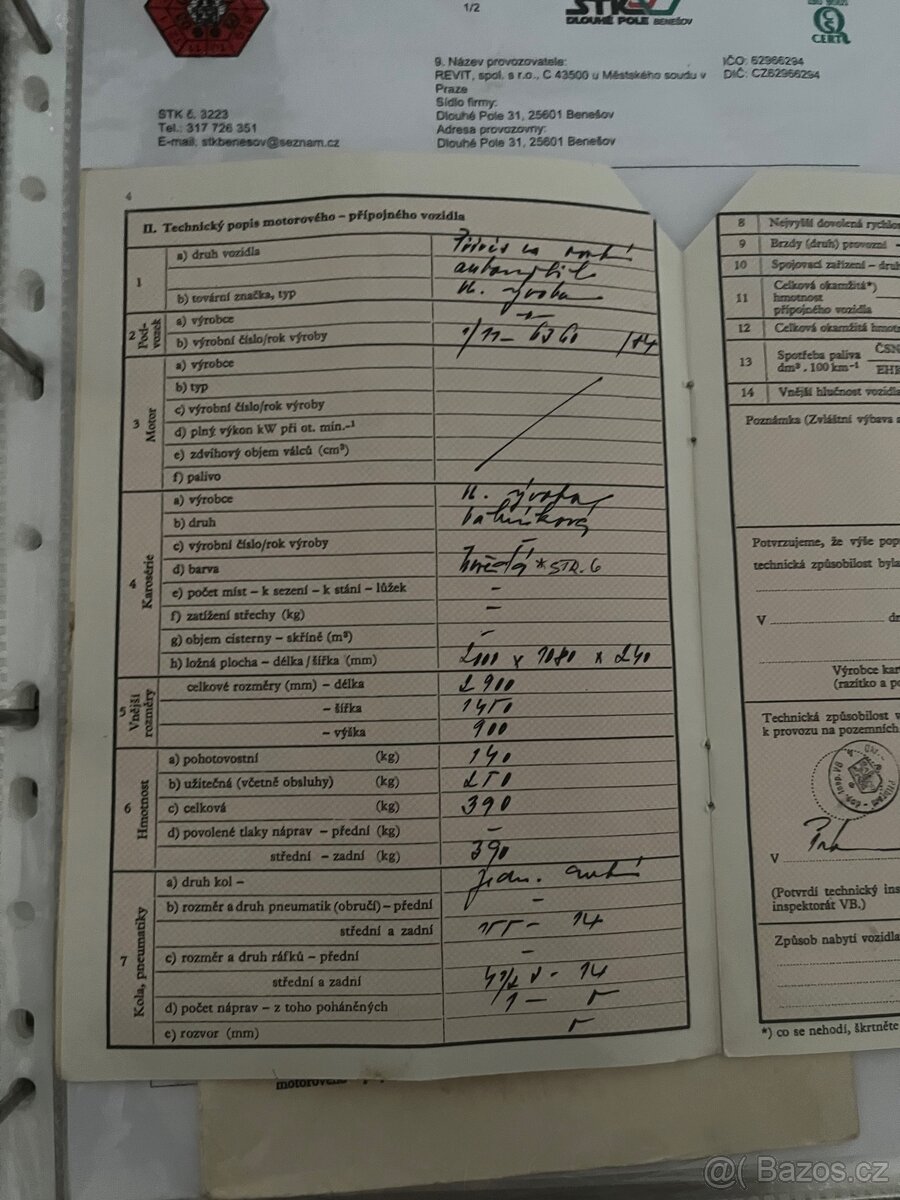 1/2
STK
DLOUHÉ POLE BENEŠOV
CERT
9. Název provozovatele:
REVIT, spol. s r.o., C 43500 u Městského soudu v
Praze
Sídlo firmy:
Dlouhé Pole 31, 25601 Benešov
Adresa provozovny:
Dlouhé Pole 31, 25601 Benešov
IČO: 62966294
DIČ: CZ62966294
STK č. 3223
Tel.: 317 726 351
E-mail: stkbenesov@seznam.cz
4
II. Technický popis motorového – přípojného vozidla
1
a) druh vozidla
Přívěs za osobní
automobil
b) tovární značka, typ
in. výroba
2 Podvozek
a) výrobce
b) výrobní číslo/rok výroby
3 Motor
a) výrobce
b) typ
c) výrobní číslo/rok výroby
d) plný výkon kW při ot. min.⁻¹
e) zdvihový objem válců (cm³)
f) palivo
4 Karosérie
a) výrobce
in. výroba
b) druh
valníková
c) výrobní číslo/rok výroby –
d) barva
hnědá *STR. 6
e) počet míst – k sezení – k stání – lůžek –
f) zatížení střechy (kg) –
g) objem cisterny – skříně (m³) –
h) ložná plocha – délka/šířka (mm) 2000 x 1080 x 240
5 Vnější rozměry
celkové rozměry (mm) – délka 2900
– šířka 1450
– výška 900
6 Hmotnost
a) pohotovostní (kg) 140
b) užitečná (včetně obsluhy) (kg) 250
c) celková (kg) 390
d) povolené tlaky náprav – přední (kg) –
střední – zadní (kg) 390
7 Kola, pneumatiky
a) druh kol –
b) rozměr a druh pneumatik (obručí) – přední –
střední a zadní 155 – 14
c) rozměr a druh ráfků – přední –
střední a zadní 4 1/2 J – 14
d) počet náprav – z toho poháněných 1 –
e) rozvor (mm)
8 Nejvyšší dovolená rychlo
9 Brzdy (druh) provozní –
10 Spojovací zařízení – druh
11 Celková okamžitá*)
hmotnost
přípojného vozidla
12 Celková okamžitá hmotn
13 Spotřeba paliva
dm³ . 100 km⁻¹
ČSN
EHK
14 Vnější hlučnost vozidla
Poznámka (Zvláštní výbava a
Potvrzujeme, že výše pop
technická způsobilost byla
V
dn
Výrobce kar
(razítko a po
Technická způsobilost v
k provozu na pozemních
V
(Potvrdí technický ins
inspektorát VB.)
Způsob nabytí vozidla
*) co se nehodí, škrtněte
motorového
@( Bazos.cz